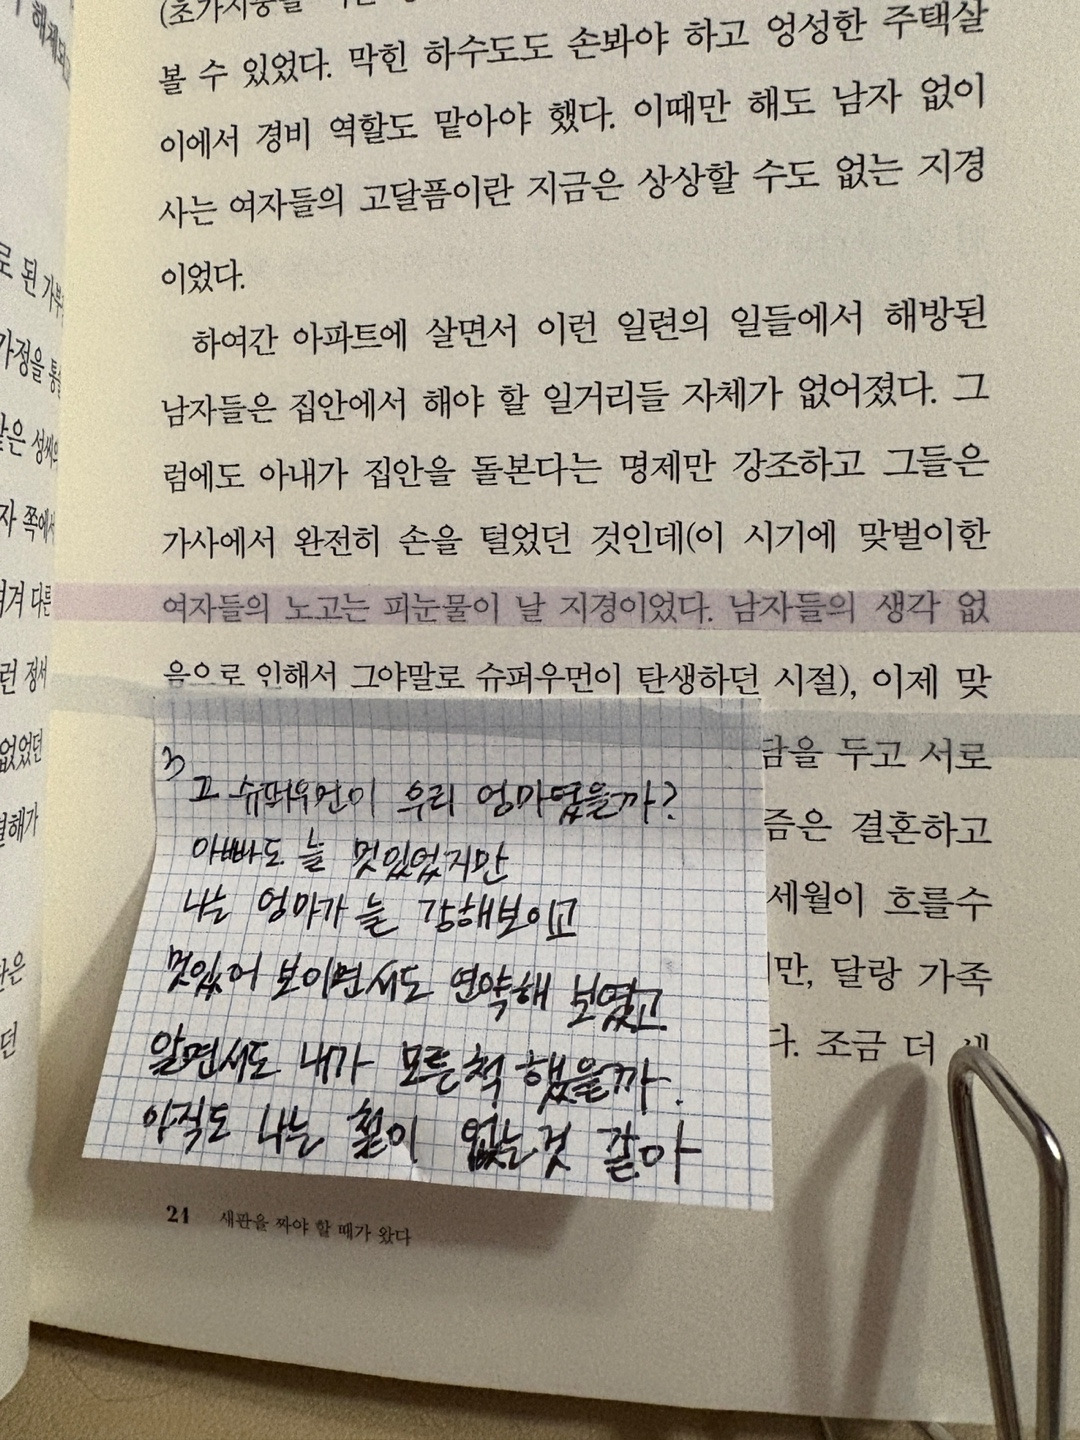 (초가지붕을
볼 수 있었다. 막힌 하수도도 손봐야 하고 엉성한 주택살
이에서 경비 역할도 맡아야 했다. 이때만 해도 남자 없이
사는 여자들의 고달픔이란 지금은 상상할 수도 없는 지경
이었다.
하여간 아파트에 살면서 이런 일련의 일들에서 해방된
남자들은 집안에서 해야 할 일거리들 자체가 없어졌다. 그
럼에도 아내가 집안을 돌본다는 명제만 강조하고 그들은
가사에서 완전히 손을 털었던 것인데(이 시기에 맞벌이한
여자들의 노고는 피눈물이 날 지경이었다. 남자들의 생각 없
음으로 인해서 그야말로 슈퍼우먼이 탄생하던 시절), 이제 맞
담을 두고 서로
즘은 결혼하고
세월이 흐를수
만, 달랑 가족
다. 조금 더
그 슈퍼우먼이 우리 엄마였을까?
아빠도 늘 멋있었지만
나는 엄마가 늘 강해보이고
멋있어 보이면서도 연약해 보였고
알면서도 내가 모른척 했을까.
아직도 나는 철이 없는것 같아
21 새판을 짜야 할 때가 왔다